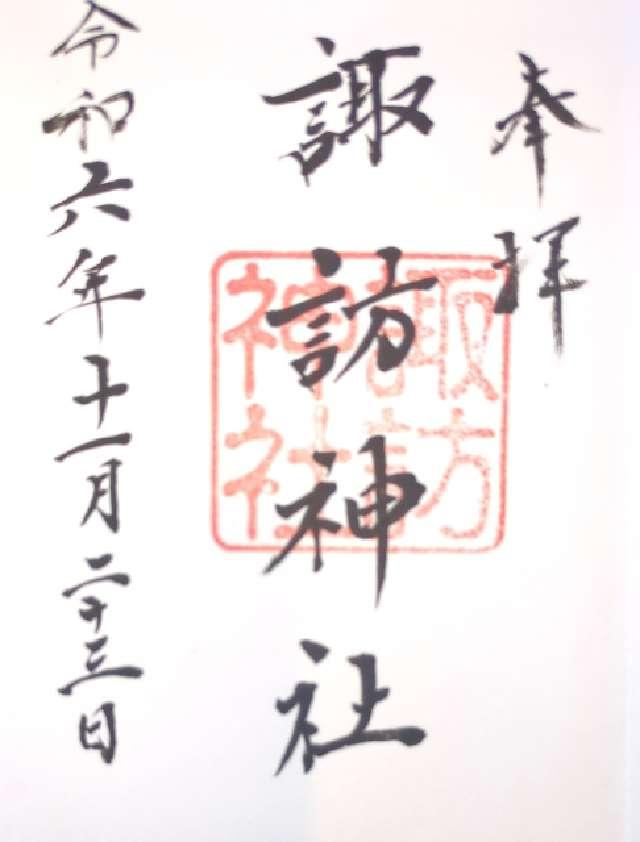 奉拝
諏訪神社
諏訪
神社
令和六年十一月二十三日